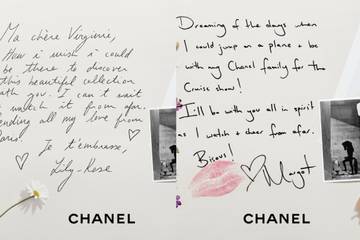 Ma chère Virginie,
How i wish i could
be there to discover
this beautiful collection
with you. I can't wait
to watch it from afar.
Sending all my love from
Paris.
Je t'embrasse,
Lily-Rose
CHANEL
Dreaming of the days when
I could jump on a plane + be
with my Chanel family for the
Cruise show!
I'll be with you all in spirit
as I watch + cheer from afar.
Bisous!
Margot
CHANEL